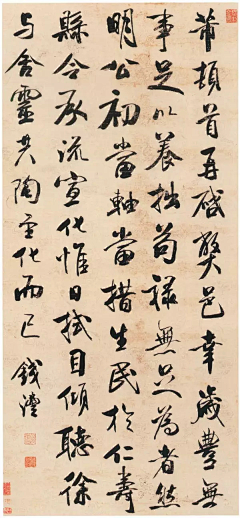 芾頓首再啟弊邑幸歲豐無
事足以養拙苟祿無足為者然
明公初當軸當措生民於仁壽
縣令承流宣化惟日拭目傾聽徐
與含靈共陶至化而已 錢灃